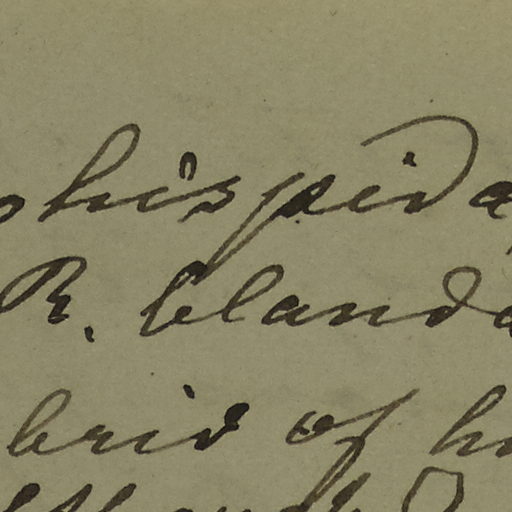 hispida
R. blanda
brid of h